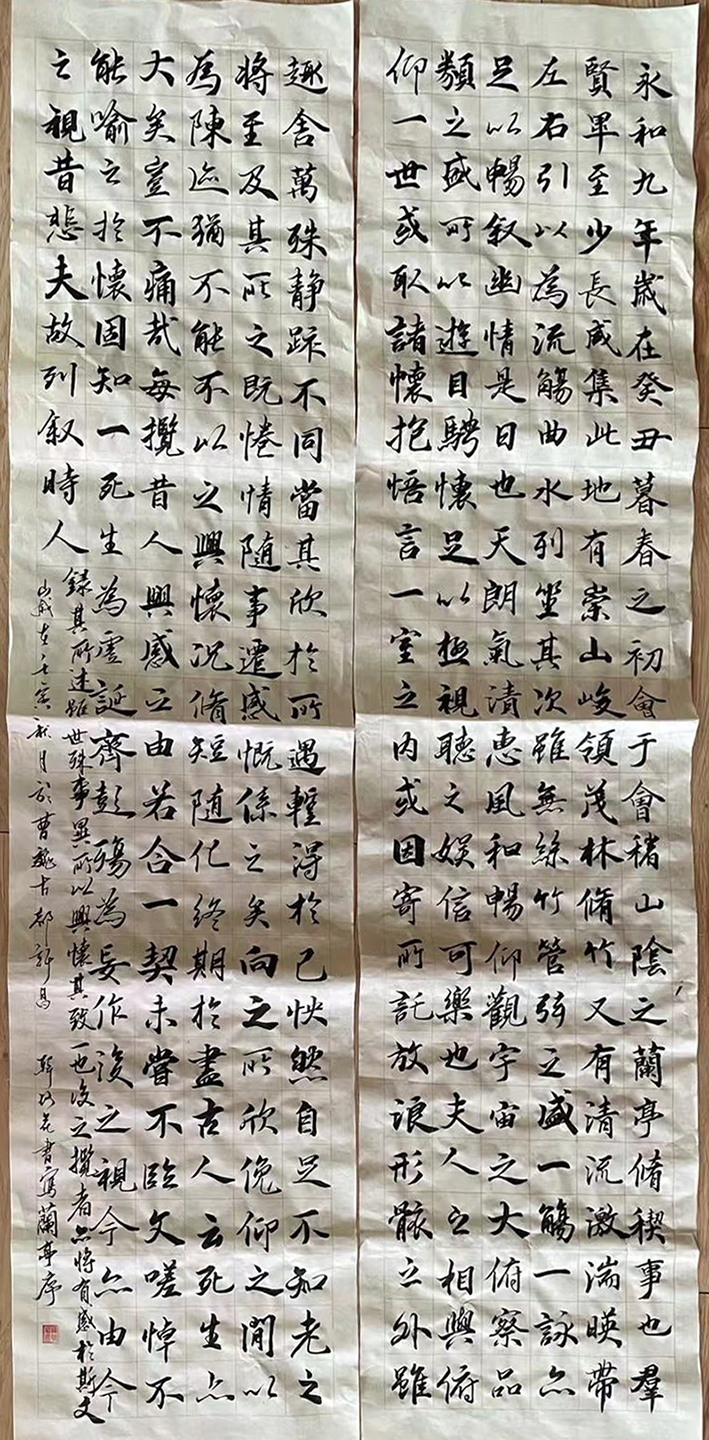 永和九年歲在癸丑暮春之初會于會稽山陰之蘭亭脩稧事也羣
賢畢至少長咸集此地有崇山峻領茂林脩竹又有清流激湍暎帶
左右引以為流觴曲水列坐其次雖無絲竹管弦之盛一觴一詠亦
足以暢叙幽情是日也天朗氣清惠風和暢仰觀宇宙之大俯察品
類之盛所以遊目騁懷足以極視聽之娛信可樂也夫人之相與俯
仰一世或取諸懷抱悟言一室之內或因寄所託放浪形骸之外雖
趣舍萬殊静躁不同當其欣於所遇輕得於己怏然自足不知老之
將至及其所之既惓情随事遷感慨係之矣向之所欣俛仰之閒以
為陳迹猶不能不以之興懷況脩短随化終期於盡古人云死生亦
大矣豈不痛哉每攬昔人興感之由若合一契未嘗不臨文嗟悼不
能喻之於懷固知一死生為虛誕齊彭殤為妄作後之視今亦由今
之視昔悲夫故列叙時人
録其所述雖世殊事異所以興懷其致一也後之攬者亦將有感於斯文
歲在壬寅秋月於曹魏古都許昌 花書寫蘭亭序